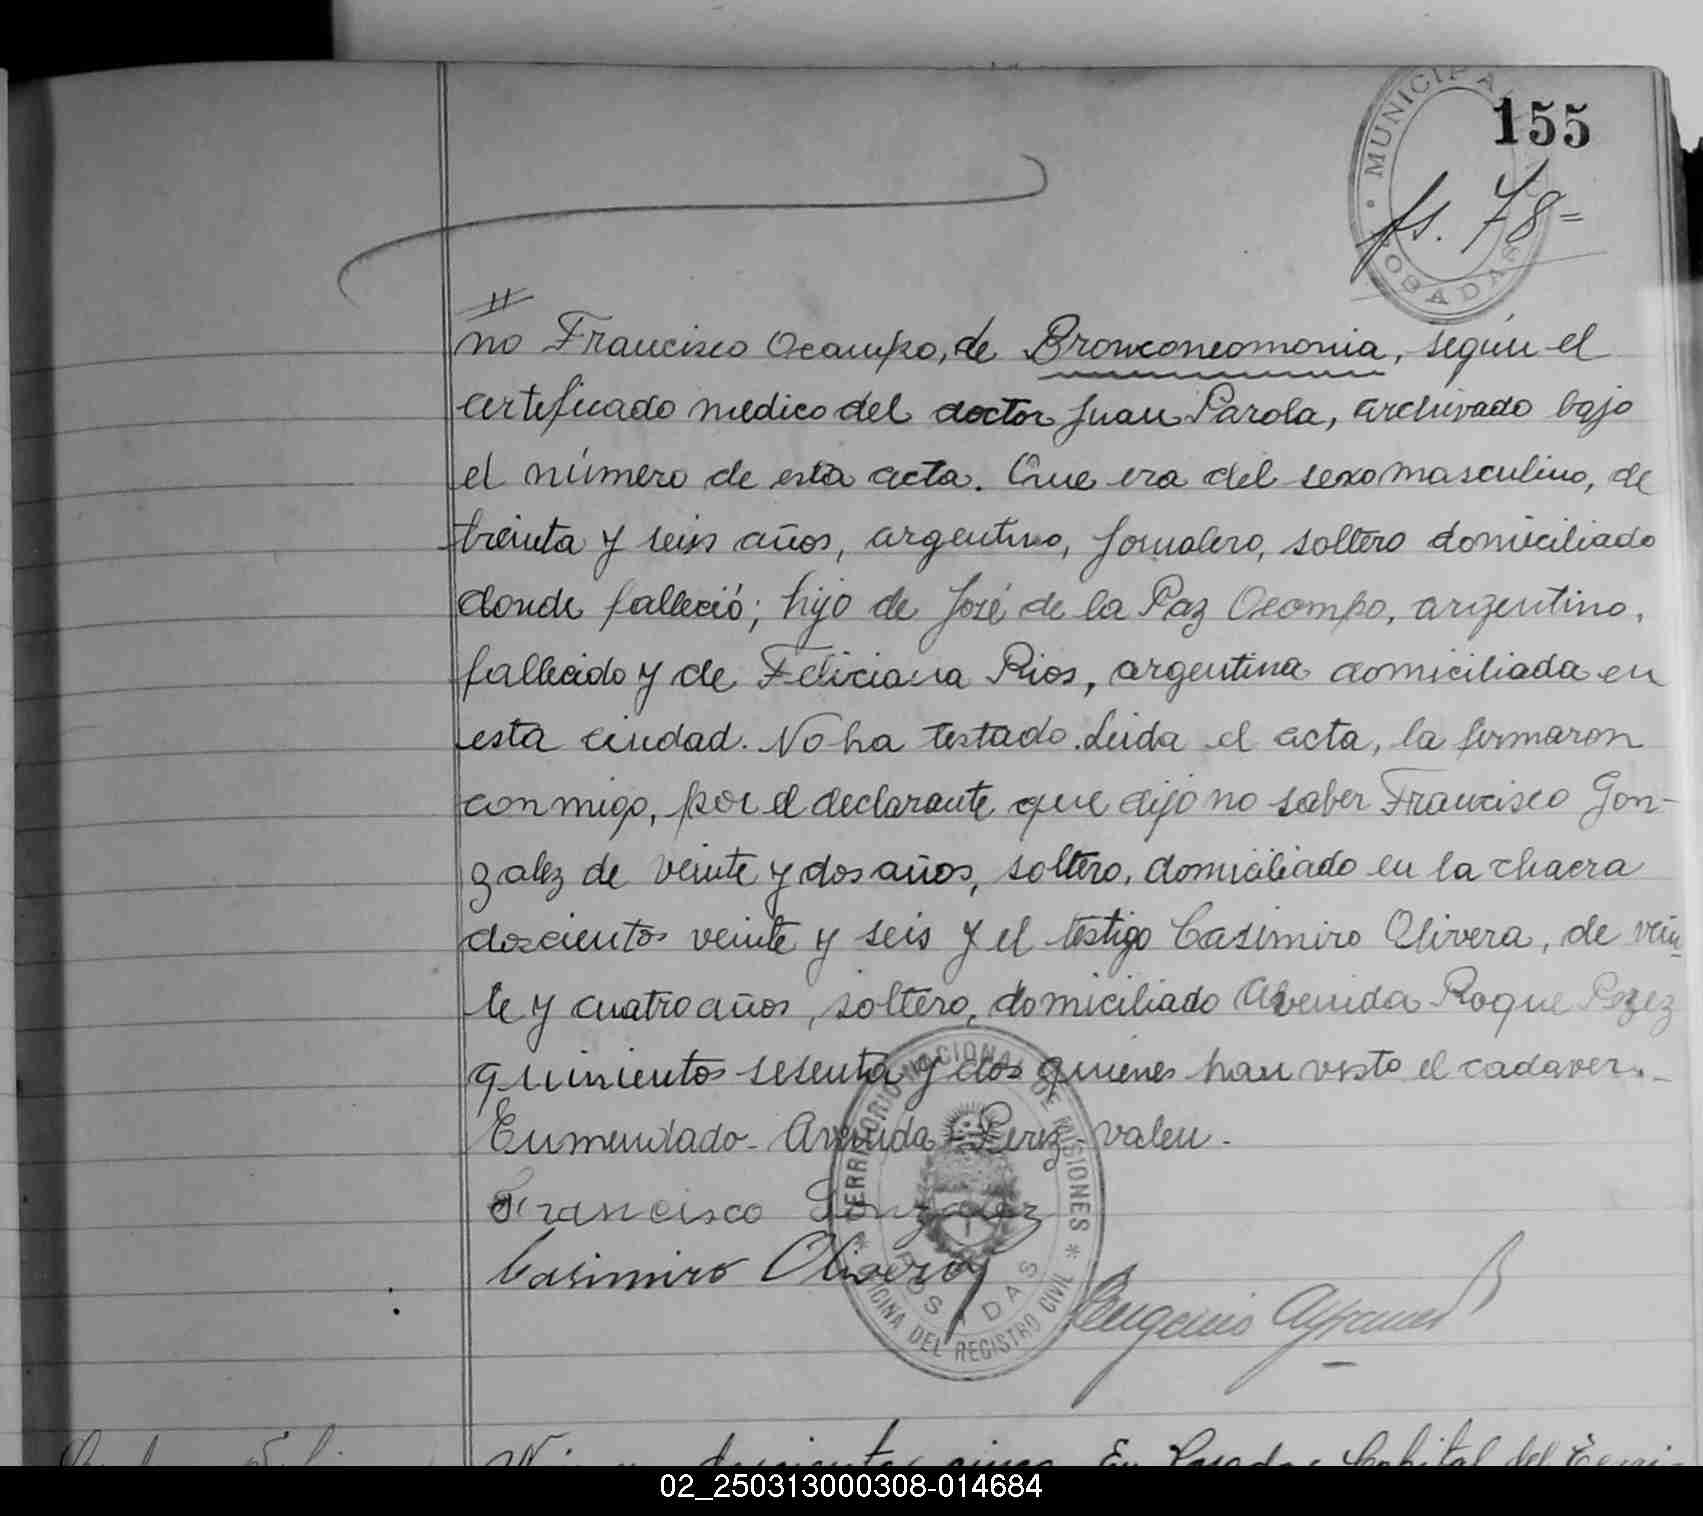 MUNICIPA
POSADAS
155
fs. 78=
no Francisco Ocampo, de Bronconeomonia, según el
certificado medico del doctor Juan Parola, archivado bajo
el número de esta acta. Que era del sexo masculino, de
treinta y seis años, argentino, jornalero, soltero domiciliado
donde falleció; hijo de José de la Paz Ocampo, argentino,
fallecido y de Feliciana Rios, argentina domiciliada en
esta ciudad. No ha testado. Leida el acta, la firmaron
conmigo, por el declarante que dijo no saber Francisco Gon-
zalez de veinte y dos años, soltero, domiciliado en la chacra
doscientos veinte y seis y el testigo Casimiro Olivera, de vein-
te y cuatro años, soltero, domiciliado Avenida Roque Perez
quinientos sesenta y dos quienes han visto el cadaver.-
Enmendado- Avenida- Perez- valen-
Francisco Gonzalez
Casimiro Olivera
Eugenio
TERRITORIO NACIONAL DE MISIONES
POSADAS
OFICINA DEL REGISTRO CIVIL
doscientos cinco. En Posadas Capital del Terri-
02_250313000308-014684